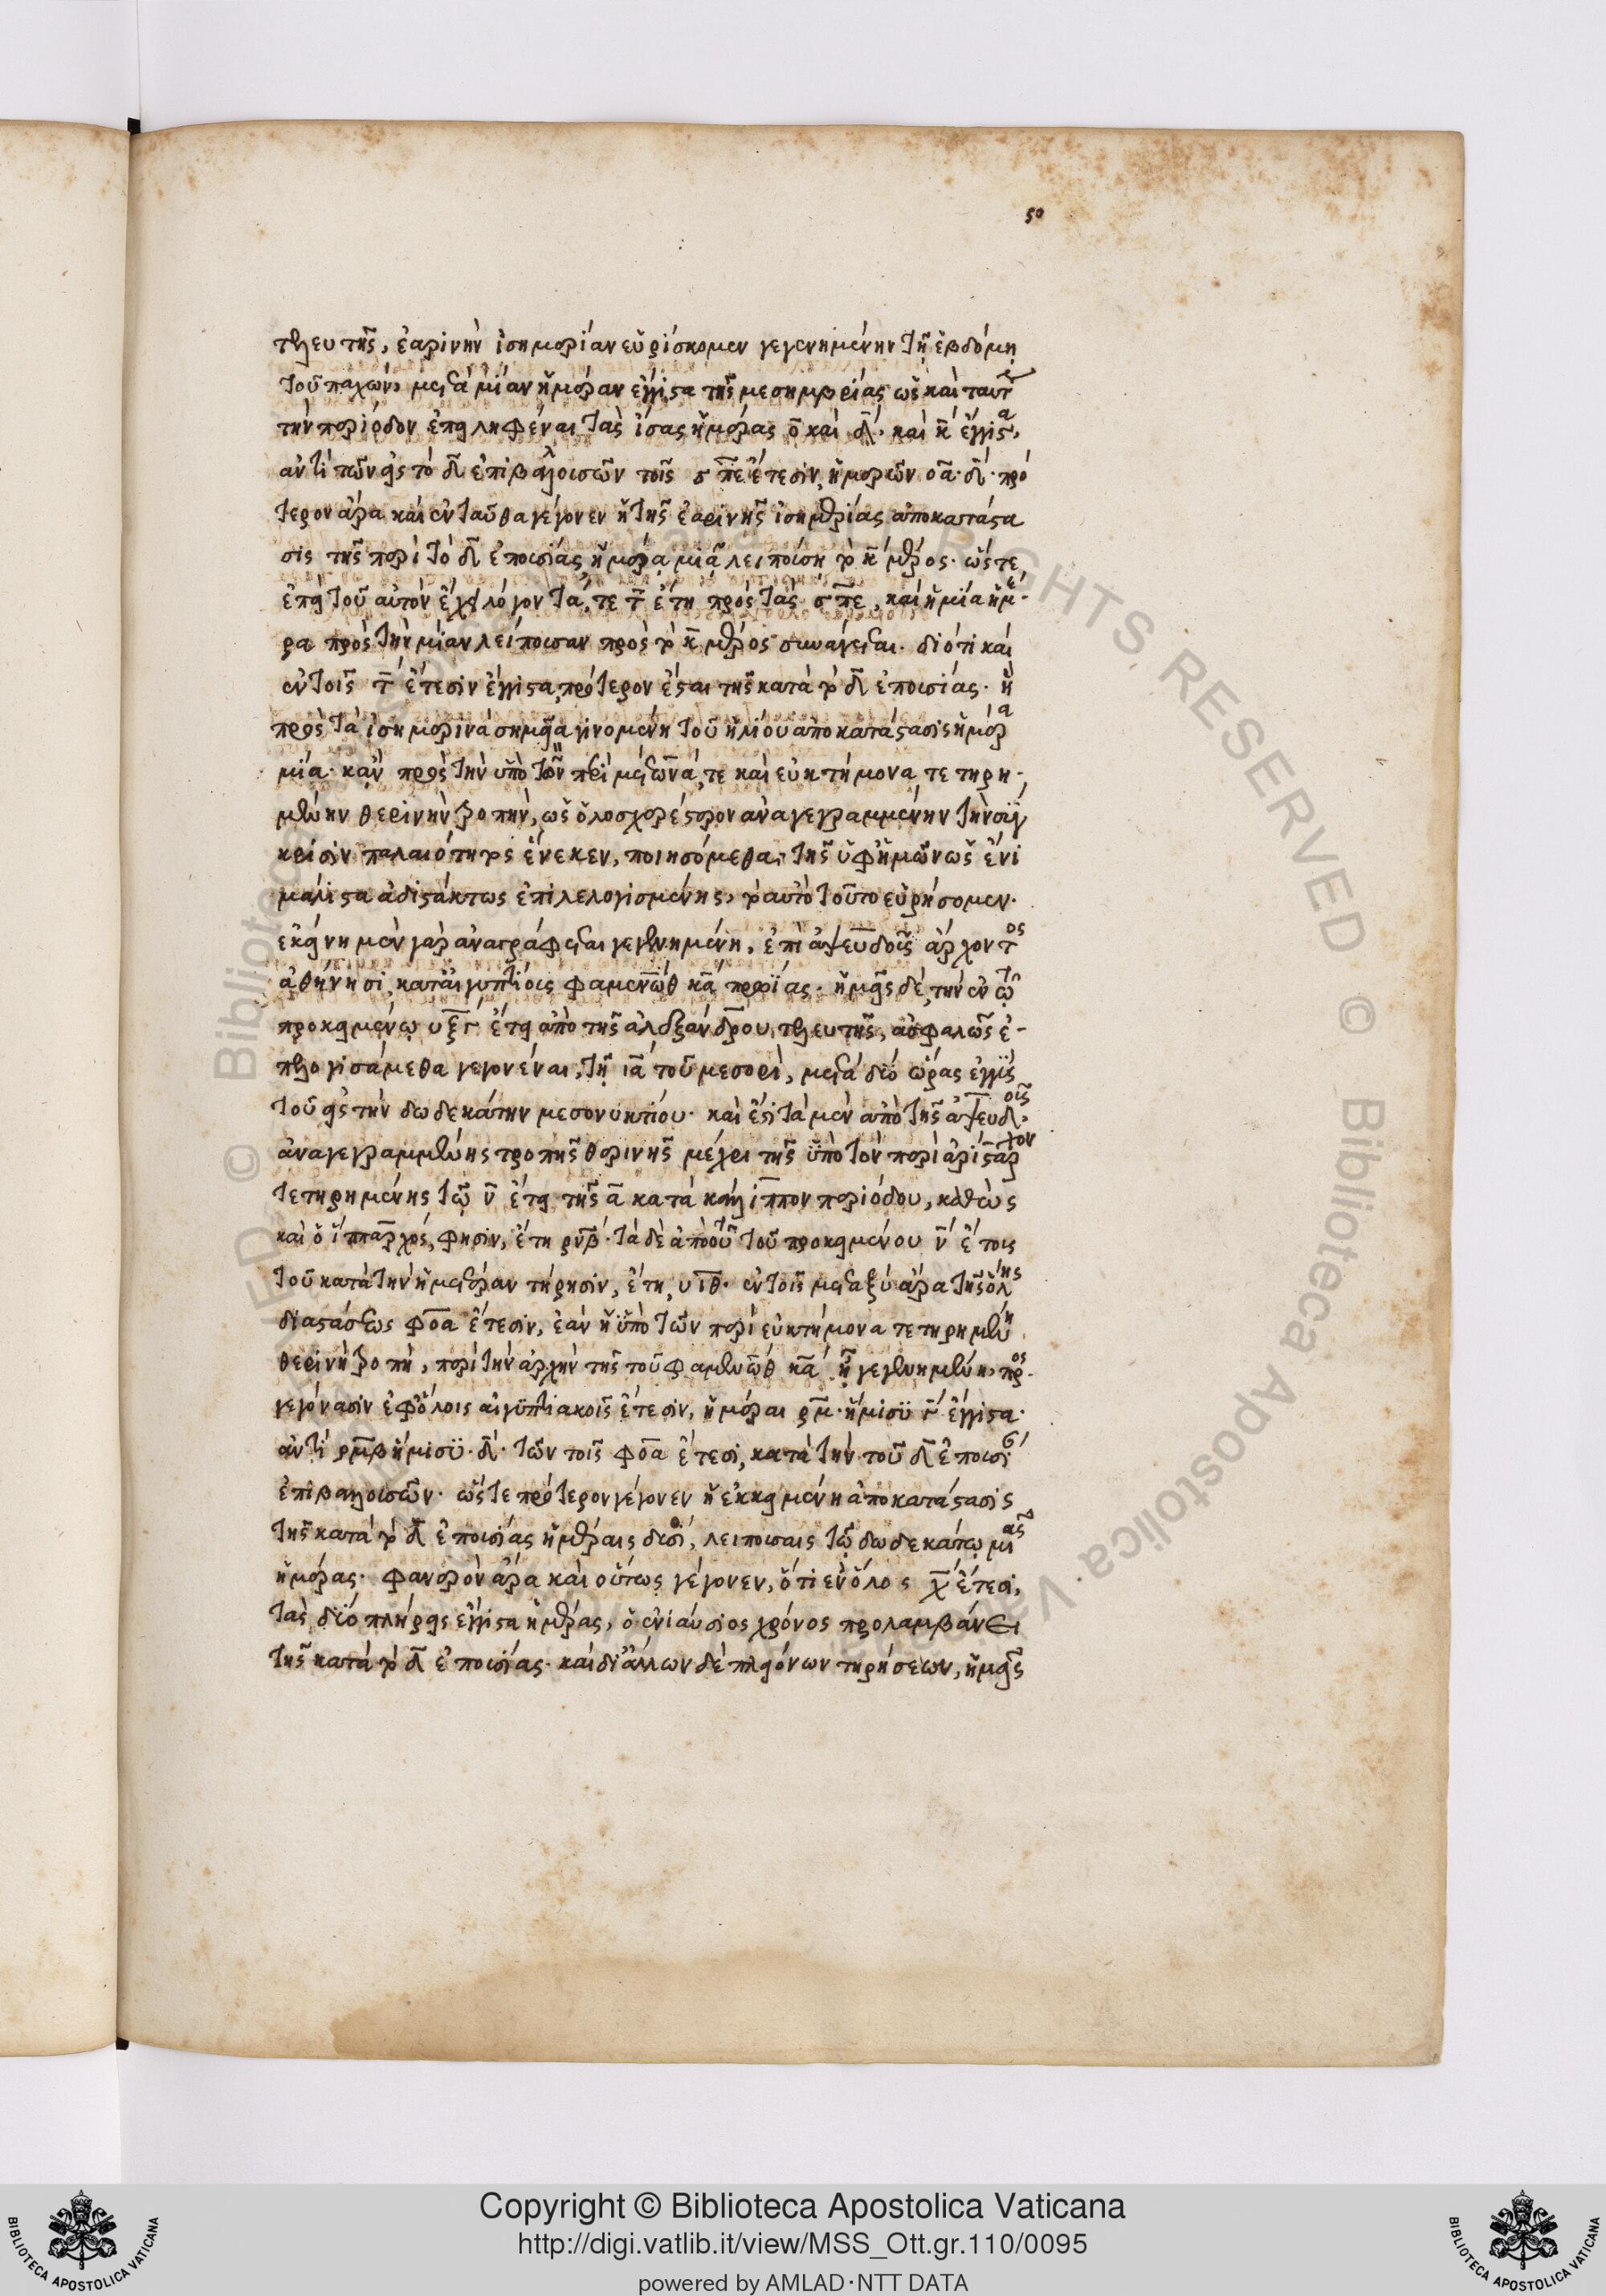 50
τελευτῆς, ἐαρινὴν ἰσημερίαν εὑρίσκομεν γεγενημένην τῇ ἑβδόμῃ
τοῦ παχών, μετὰ μίαν ἡμέραν ἔγγιστα τῆς μεσημβρίας ὡς καὶ ταύτ
τὴν περίοδον ἐπειληφέναι τὰς ἴσας ἡμέρας ο̅ καὶ δ̅· καὶ κ̅ ἔγγιστα,
ἀντὶ τῶν εἰς τὸ δ̅ ἐπιβαλλουσῶν τοῖς σ̅π̅ε̅ ἔτεσιν, ἡμερῶν ο̅α̅· δ̅· πρό
τερον ἄρα καὶ ἐνταῦθα γέγονεν ἡ τῆς ἐαρινῆς ἰσημερίας ἀποκατάστα
σις τῆς περὶ τὸ δ̅ ἐπουσίας ἡμέρᾳ μιᾷ λειπούσῃ τὸ κ̅ μέρος· ὥστε,
ἐπεὶ τοῦ αὐτὸν ἔχει λόγον τά, τε τ̅ ἔτη πρὸς τὰς σ̅π̅ε̅, καὶ ἡ μία ἡμέ-
ρα πρὸς τὴν μίαν λείπουσαν πρὸς τὸ κ̅ μέρος συνάγεται. διότι καὶ
ἐν τοῖς τ̅ ἔτεσιν ἔγγιστα, πρότερον ἔσται τῆς κατὰ τὸ δ̅ ἐπουσίας· ἡ
πρὸς τὰ ἰσημερινὰ σημεῖα γινομένη τοῦ ἡλίου ἀποκατάστασις ἡμέρα
μία· κἂν πρὸς τὴν ὑπὸ τῶν περὶ μέτωνά, τε καὶ εὐκτήμονα τετηρη-
μένην θερινὴν τροπήν, ὡς ὁλοσχερέστερον ἀναγεγραμμένην τὴν σύγ
κρισιν παλαιότητος ἕνεκεν, ποιησόμεθα, τῆς ὑφ' ἡμῶν ὡς ἔνι
μάλιστα ἀδιστάκτως ἐπιλελογισμένης, τὸ αὐτὸ τοῦτο εὑρήσομεν.
ἐκείνη μὲν γὰρ ἀναγράφεται γεγενημένη, ἐπὶ ἀψευδοῖς ἄρχοντος
ἀθήνησι, κατ' αἰγυπτίοις φαμενὼθ κ̅α̅ πρωΐας· ἡμεῖς δέ, τὴν ἐν τῷ
προκειμένῳ υ̅ξ̅γ̅ ἔτει ἀπὸ τῆς ἀλεξάνδρου τελευτῆς, ἀσφαλῶς ἐ-
πελογισάμεθα γεγονέναι, τῇ ι̅α̅ τοῦ μεσορί, μετὰ δύο ὥρας ἐγγὺς
τοῦ εἰς τὴν δωδεκάτην μεσονυκτίου· καὶ ἔστι τὰ μὲν ἀπὸ τῆς ἀψευδοῖς
ἀναγεγραμμένης τροπῆς θερινῆς μέχρι τῆς ὑπὸ τὸν περὶ ἀρίσταρχον
τετηρημένης τῷ ν̅ ἔτει τῆς α̅ κατὰ κάλλιππον περιόδου, καθὼς
καὶ ὁ ἵππαρχός, φησιν, ἔτη ρ̅ν̅β̅· τὰ δὲ ἀπὸ τοῦ τοῦ προκειμένου ν̅ ἔτους
τοῦ κατὰ τὴν ἡμετέραν τήρησιν, ἔτη, υ̅ι̅θ̅· ἐν τοῖς μεταξὺ ἄρα τῆς ὅλης
διαστάσεως φ̅ο̅α̅ ἔτεσιν, ἐὰν ἡ ὑπὸ τῶν περὶ εὐκτήμονα τετηρημένη
θερινὴ τροπή, περὶ τὴν ἀρχὴν τῆς τοῦ φαμενὼθ κ̅α̅ ᾖ γεγενημένη, προς-
γεγόνασιν ἐφ' ὅλοις αἰγυπτιακοῖς ἔτεσιν, ἡμέραι ρ̅μ̅· ἥμισυ γ̅ ἔγγιστα·
ἀντὶ ρ̅μ̅β̅ ἥμισυ· δ̅· τῶν τοῖς φ̅ο̅α̅ ἔτεσι, κατὰ τὴν τοῦ δ̅ ἐπουσί
ἐπιβαλλουσῶν· ὥστε πρότερον γέγονεν ἡ ἐκκειμένη ἀποκατάστασις
τῆς κατὰ τὸ δ̅ ἐπουσίας ἡμέραις δυσί, λειπούσαις τῷ δωδεκάτῳ μιᾶς
ἡμέρας· φανερὸν ἄρα καὶ οὕτως γέγονεν, ὅτι ἐν ὅλοις χ̅ ἔτεσι,
τὰς δύο πλήρεις ἔγγιστα ἡμέρας, ὁ ἐνιαύσιος χρόνος προλαμβάνει
τῆς κατὰ τὸ δ̅ ἐπουσίας· καὶ δι' ἄλλων δὲ πλειόνων τηρήσεων, ἡμεῖς
Copyright © Biblioteca Apostolica Vaticana
http://digi.vatlib.it/view/MSS_Ott.gr.110/0095
powered by AMLAD·NTT DATA
BIBLIOTECA APOSTOLICA VATICANA
BIBLIOTECA APOSTOLICA VATICANA